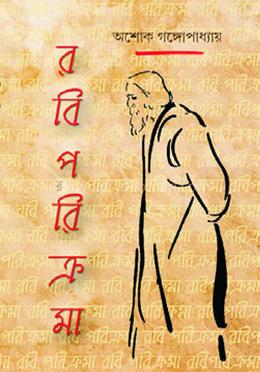 অশোক গঙ্গোপাধ্যায়
রবিপরিক্রমা